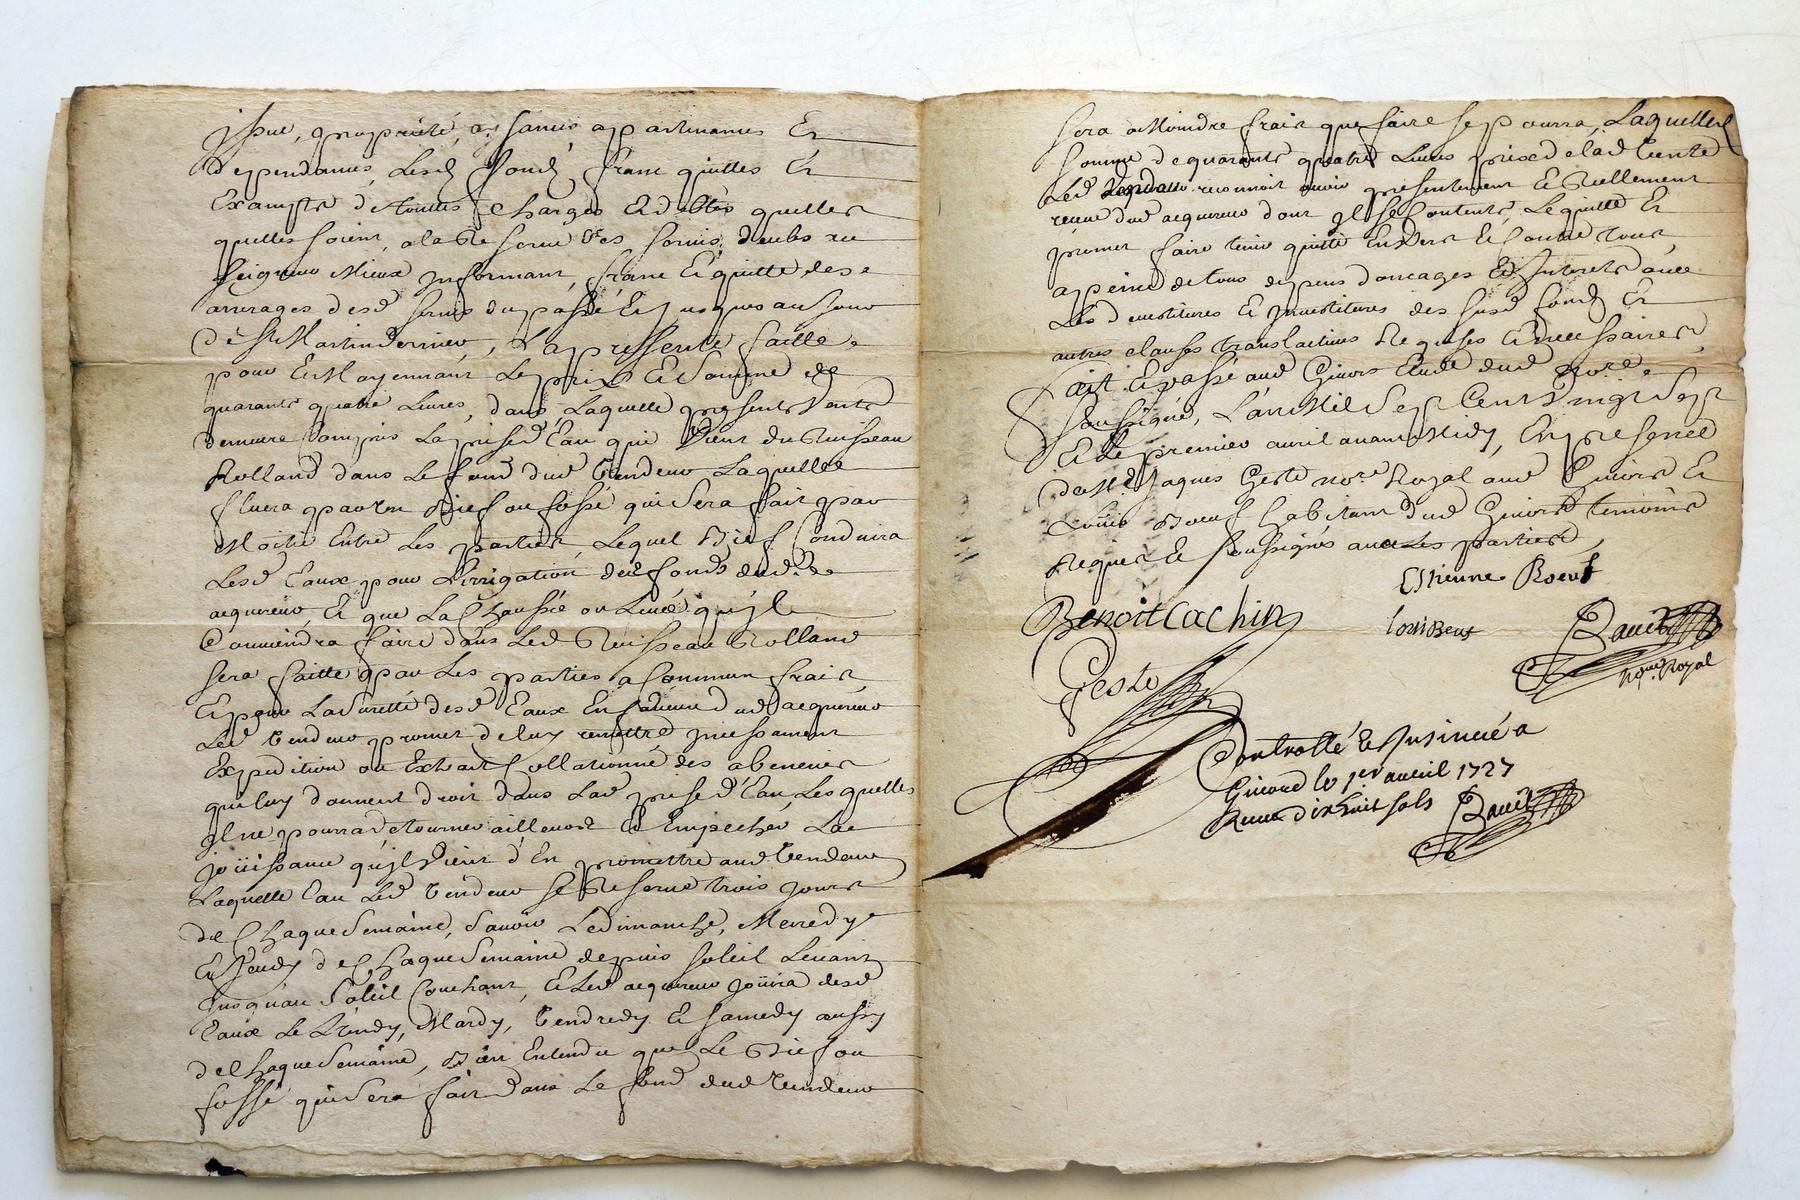 jssue, proprieté, aysances appartenances Et
dependances, Lesd. fonds franc quittes Et
Exampts de touttes Charges Et debtes quelles
quelles soient, a la Reserve des servis deubs au
seigneur Mieux jnformant, franc Et quitte des
arrerages desd. servis du passé Et jusques au jour
de St Martin dernier, La presente faitte
pour Et Moyennant Le prix Et Somme de
quarante quatre Livres, dans Laquelle presente Vente
demeure Compris La prise d'Eau qui Vient du Ruisseau
Rolland dans Le fond dud. Vendeur Laquelle
fluera par un Bief ou fossé qui Sera fait par
Moitié Entre Les parties, Lequel Bief Conduira
Lesd. Eaux pour L'irrigation des fonds dud.
acquereur, Et que La Chaussée ou Levée qu'jl
Conviendra faire dans Led. Ruisseau Rolland
sera faitte par Les parties a Commun frais
Et pour La Suretté desd. Eaux En faveur dud. acquereur
Led. Vendeur promet de luy remettre jncessament
Expedition ou Extrait Collationné des abenevis
qui luy donnent droit dans Lad. prise d'Eau, Lesquelles
jl ne pourra detourner ailleurs Et Empecher La
joüissance qu'jl Vient d'En promettre aud. Vendeur
Laquelle Eau Led. Vendeur se Reserve trois jours
de Chaque Semaine, Sauoir Le dimanche, Mercredy
Et Jeudy de Chaque Semaine depuis soleil Levant
jusqu'au Soleil Couchant, Et Led. acquereur joüira desd.
Eaux Le Lundy, Mardy, Vendredy Et samedy aussy
de Chaque Semaine, Bien Entendu que Le Bief ou
fossé qui Sera fait dans Le fond dud. Vendeur
sera a Moindre frais que faire se pourra, Laquelle
somme de quarante quatre Livres prix de lad. Vente
Led. Vendeur reconnoit auoir presentement Et Reellement
receue dud. acquereur dont jl se Contente, Le quitte Et
promet faire tenir quitte Envers Et Contre tous,
a peine de tous depens domages Et Interets auec
Les deuestitures Et jnuestitures des susd. fonds Et
autres clauses translatiues Requises Et necessaires,
fait Et passé aud. Givors Etude dud. Nore
soussigné, L'an Mil Sept Cent Vingt Sept
Et Le premier avril auant Midy, En presence
de Me Jaques Geste nore Royal aud. Givors Et
Louis Boeuf habitant dud. Givors temoins
Requis Et soussignés auec Les parties,
Estienne Boeuf
Benoit Cachin
Louis Beuf
Geste
nore Royal
Controllé Et Insinué a
Givord le 1er aveil 1727
Receu dix huit sols